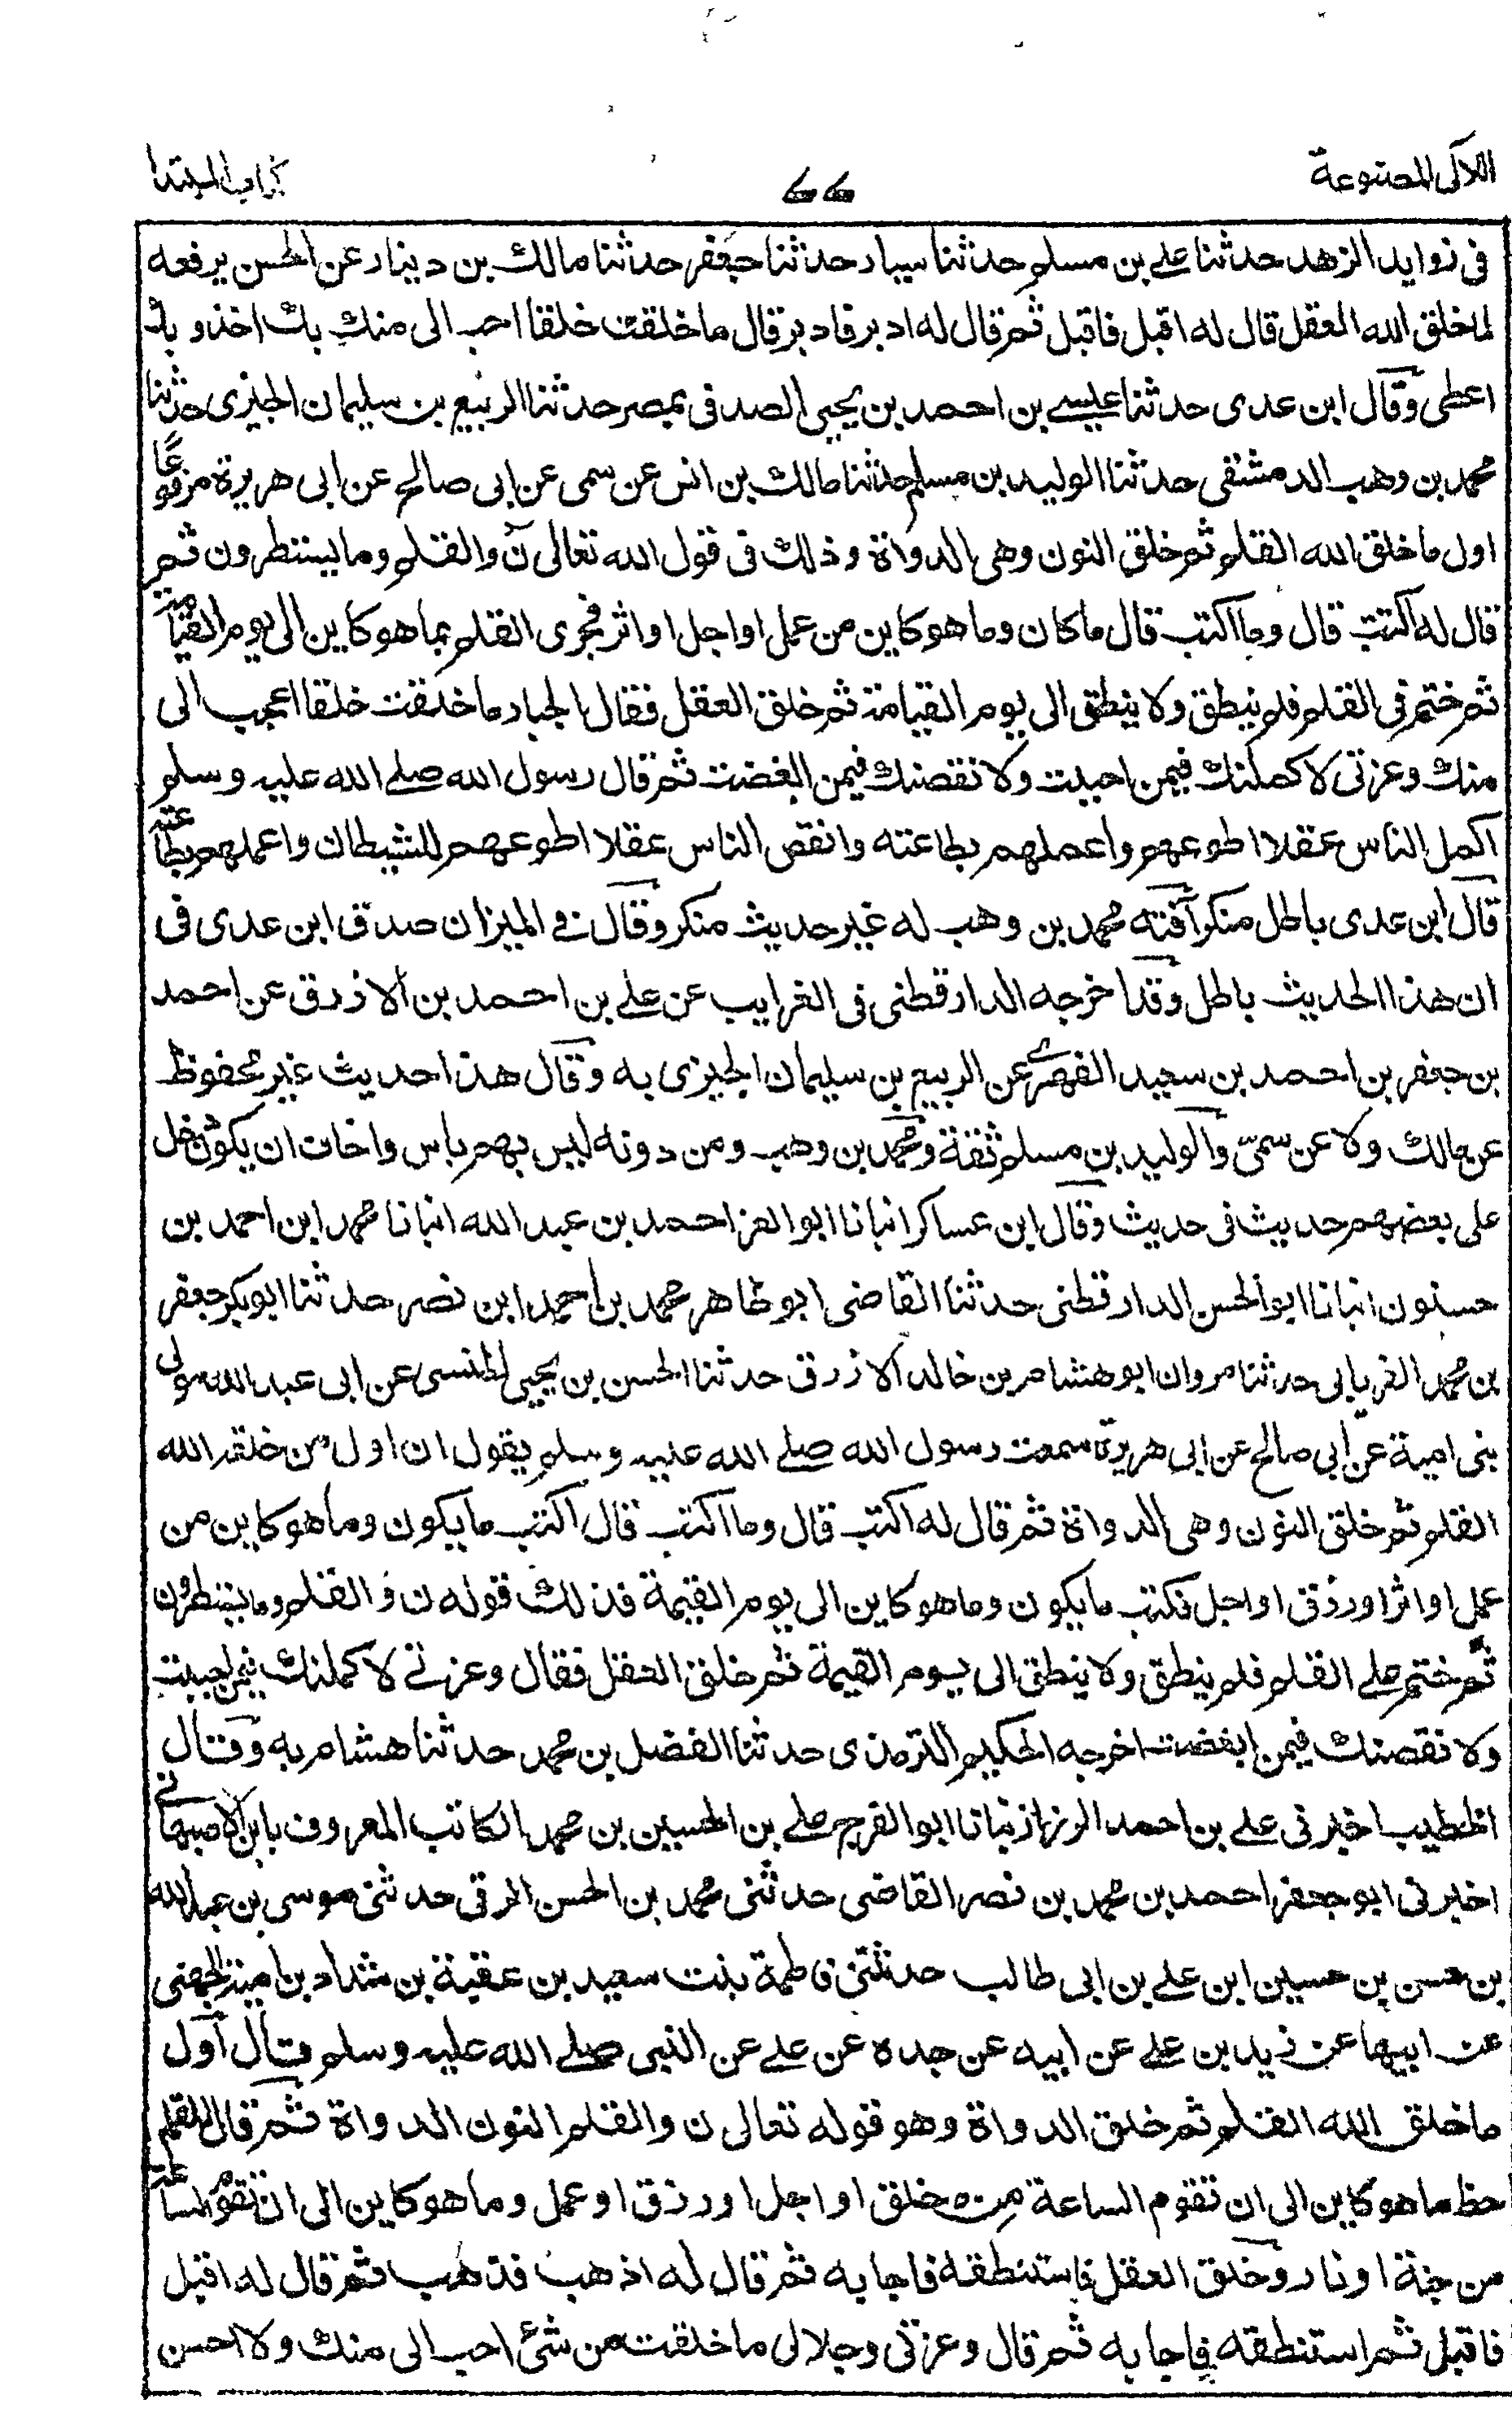 اللآلى المصنوعة
٦٦
كتاب المبتدا
فى زوايد الزهد حدثنا على بن مسلم حدثنا سيار حدثنا جعفر حدثنا مالك بن دينار عن الحسن يرفعه
لما خلق الله العقل قال له اقبل فاقبل ثم قال له ادبر فادبر قال ما خلقت خلقا احب الى منك بك اخذ و بك
اعطى وقال ابن عدى حدثنا عيسى بن احمد بن يحيى الصدفى بمصر حدثنا الربيع بن سليمان الجيزى حدثنا
محمد بن وهب الدمشقى حدثنا الوليد بن مسلم حدثنا مالك بن انس عن سمى عن ابى صالح عن ابى هريرة مرفوعا
اول ما خلق الله القلم ثم خلق النون وهى الدواة وذلك فى قول الله تعالى ن والقلم وما يسطرون ثم
قال له اكتب قال وما اكتب قال ما كان وما هو كاين من عمل او اجل او اثر فجرى القلم بما هو كاين الى يوم القيامة
ثم ختم فى القلم فلم ينطق ولا ينطق الى يوم القيامة ثم خلق العقل فقال الجبار ما خلقت خلقا اعجب الى
منك وعزتى لاكملنك فيمن احببت ولا نقصنك فيمن ابغضت ثم قال رسول الله صلى الله عليه وسلم
اكمل الناس عقلا اطوعهم واعملهم بطاعته وانقص الناس عقلا اطوعهم للشيطان واعملهم بطاعته
قال ابن عدى باطل منكر آفته محمد بن وهب له غير حديث منكر وقال فى الميزان صدق ابن عدى فى
ان هذا الحديث باطل وقد اخرجه الدارقطنى فى الغرايب عن على بن احمد بن الازرق عن احمد
بن جعفر بن احمد بن سعيد الفهرى عن الربيع بن سليمان الجيزى به وقال هذا حديث غير محفوظ
عن مالك ولا عن سمىّ والوليد بن مسلم ثقة ومحمد بن وهب ومن دونه ليس بهم باس واخاف ان يكون دخل
على بعضهم حديث فى حديث وقال ابن عساكر انبانا ابو العز احمد بن عبد الله انبانا محمد ابن احمد بن
حسنون انبانا ابو الحسن الدارقطنى حدثنا القاضى ابو طاهر محمد بن احمد ابن نصر حدثنا ابو بكر جعفر
بن محمد الفريابى حدثنا مروان ابو هشام بن خالد الازرق حدثنا الحسن بن يحيى الخشنى عن ابى عبد الله مولى
بنى امية عن ابى صالح عن ابى هريرة سمعت رسول الله صلى الله عليه وسلم يقول ان اول من خلقه الله
القلم ثم خلق النون وهى الدواة ثم قال له اكتب قال وما اكتب قال اكتب ما يكون وما هو كاين من
عمل او اثر او رزق او اجل فكتب ما يكون وما هو كاين الى يوم القيمة فذلك قوله ن والقلم وما يسطرون
ثم ختم على القلم فلم ينطق ولا ينطق الى يوم القيمة ثم خلق العقل فقال وعزتى لاكملنك فيمن احببت
ولا نقصنك فيمن ابغضت اخرجه الحكيم الترمذى حدثنا الفضل بن محمد حدثنا هشام به وقال
الخطيب اخبرنى على بن احمد الرزاز انبانا ابو الفرج على بن الحسين بن محمد الكاتب المعروف بابن الاصبهانى
اخبرنى ابو جعفر احمد بن محمد بن نصر القاضى حدثنى محمد بن الحسن الرقى حدثنى موسى بن عبد الله
بن حسن بن حسين ابن على بن ابى طالب حدثتنى فاطمة بنت سعيد بن عقبة بن شداد بن امية الجهنى
عن ابيها عن زيد بن على عن ابيه عن جده عن على عن النبى صلى الله عليه وسلم قال اول
ما خلق الله القلم ثم خلق الدواة وهو قوله تعالى ن والقلم النون الدواة ثم قال للقلم
خط ما هو كاين الى ان تقوم الساعة من خلق او اجل او رزق او عمل وما هو كاين الى ان تقوم الساعة
من جنة او نار وخلق العقل فاستنطقه فاجابه ثم قال له اذهب فذهب ثم قال له اقبل
فاقبل ثم استنطقه فاجابه ثم قال وعزتى وجلالى ما خلقت من شئ احب الى منك ولا احسن